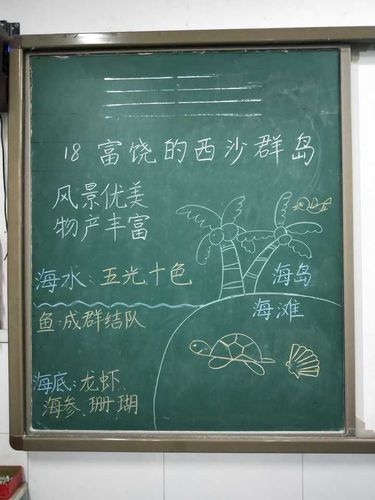 18 富饶的西沙群岛
风景优美
物产丰富
海水：五光十色
海岛
海滩
鱼：成群结队
海底：龙虾
海参、珊瑚